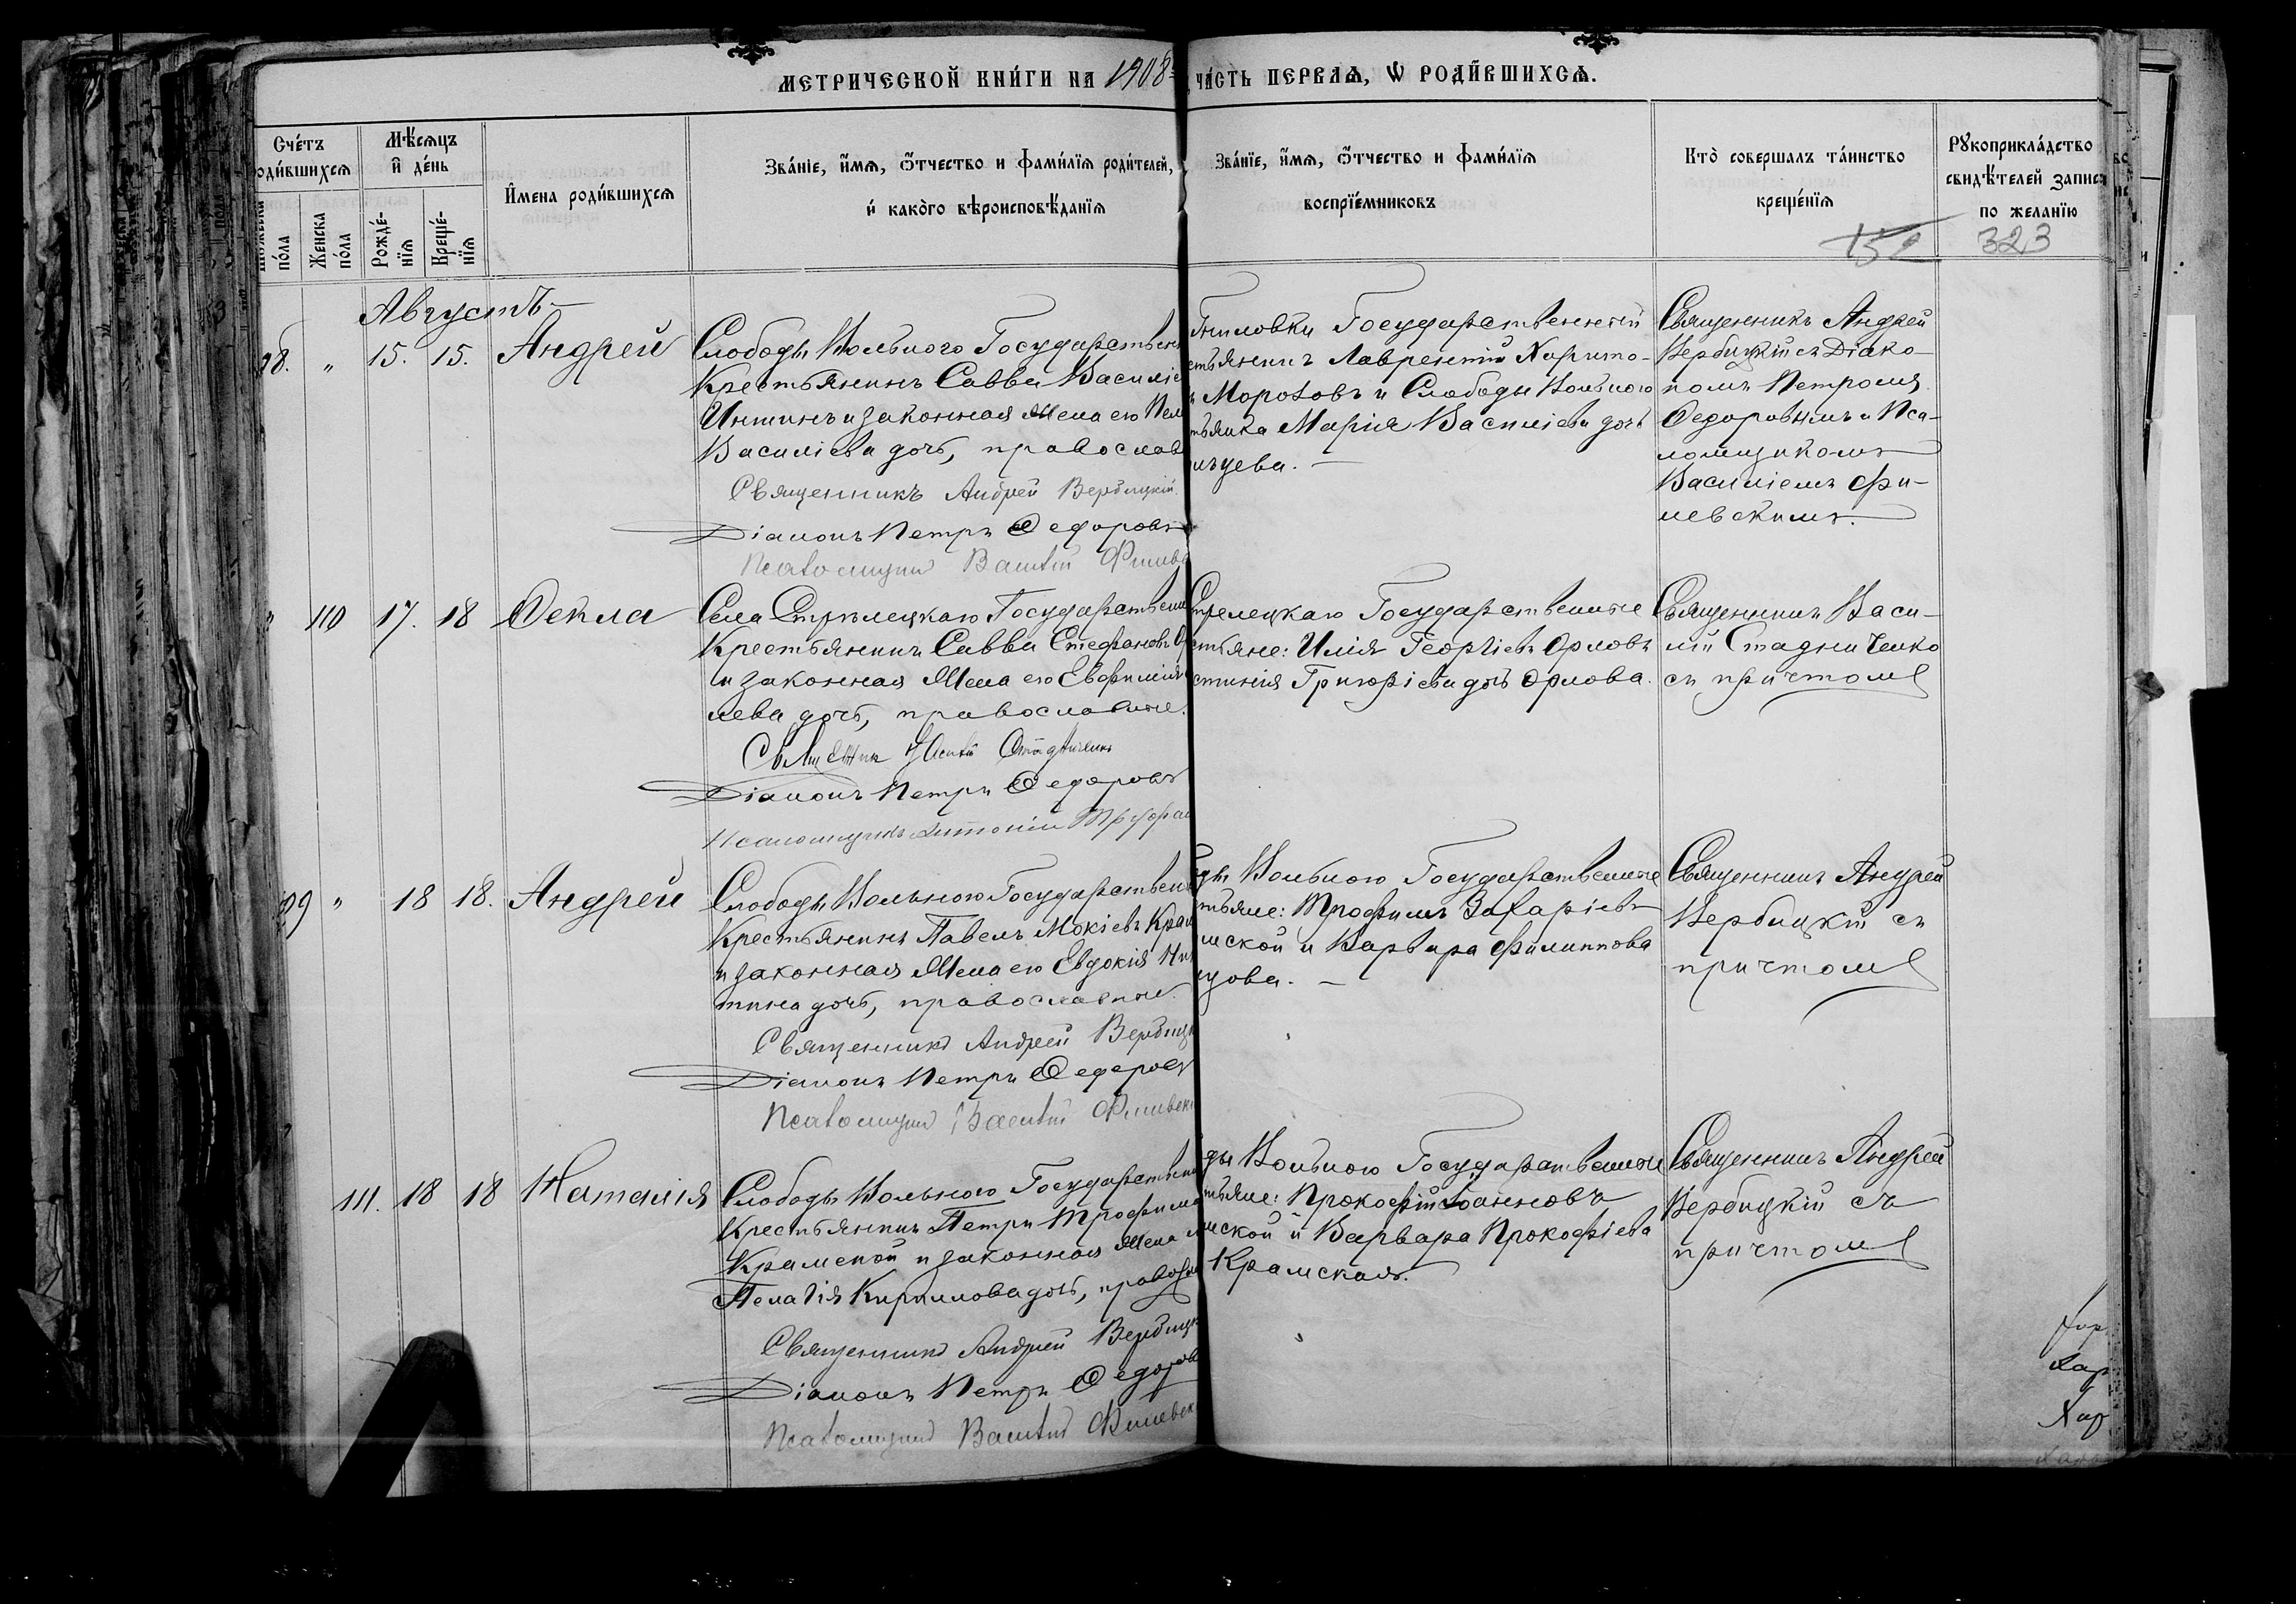 МЕТРИЧЕСКОЙ КНИ́ГИ НА 1908
ЧА́СТЬ ПЕРВАѦ, Ѡ РОДИ́ВШИХСѦ.
Сче́тъ
оди́вшихсѧ
по́ла
Же́нска
по́ла
Мѣ́сѧцъ
и҆ де́нь
Рожде́-
нїѧ
Креще́-
нїѧ
И҆мена роди́вшихсѧ
Зва́нїе, и҆́мѧ, ѻ҆́тчество и фами́лїѧ роди́телей,
и҆ како́го вѣроисповѣ́данїѧ
Зва́нїе, и҆́мѧ, ѻ҆́тчество и фами́лїѧ
воспрїе́мниковъ
Кто̀ соверша́лъ та́инство
креще́нїѧ
152
Рꙋкоприкла́дство
свидѣ́телей записи
по жела́нїю
323
Августъ
15. 15. Андрей
Слободы Вольного Государствен
Крестьянинъ Савва Василіе
и законная жена его Пел
Василіева дочь, православ
Священникъ Андрей Вербицкій
Діаконъ Петръ Ѳедоровъ
Псаломщикъ Василій Филевс
Государственный
стьянинъ Лаврентій Харито-
Морозовъ и Слободы Вольного
тьянка Марія Василіева дочь
Священникъ Андрей
Вербицкій съ Діако-
номъ Петромъ
Ѳедоровымъ и Пса-
ломщикомъ
Василіемъ Фи-
левскимъ.
110 17. 18 Ѳекла
Села Стрѣлецкаго Государствен
Крестьянинъ Савва Стефановъ Ор
и законная жена его Евфимія
лева дочь, православные.
Священник
Діаконъ Петръ Ѳедоровъ
Псаломщикъ Антоній Труфан
Стрелецкаго Государственные
стьяне: Илія Георгіевъ Орловъ
стинія Григоріева дочь Орлова.
Священникъ Васи-
лій Стадниченко
съ причтомъ
109 " 18 18. Андрей
Слободы Вольного Государствен
Крестьянинъ Павелъ Мокіевъ Крам
и законная жена его Евдокія Ни
тина дочь, православные.
Священникъ Андрей Вербицк
Діаконъ Петръ Ѳедоровъ
Псаломщикъ Василій Филевск
ды Вольного Государственные
тьяне: Трофимъ Захаріевъ
мской и Варвара Филиппова
Священникъ Андрей
Вербицкій съ
причтомъ
111. 18 18 Наталія
Слободы Вольного Государствен
Крестьянинъ Петръ Трофимо
Крамской и законная жена
Пелагія Кириллова дочь, правосл
Священникъ Андрей Вербицк
Діаконъ Петръ Ѳедоров
Псаломщикъ Василій Филевск
ды Вольного Государственные
тьяне: Прокофій Іоанновъ
мской и Варвара Прокофіева
Крамская.
Священникъ Андрей
Вербицкій съ
причтомъ
Хар
Хар